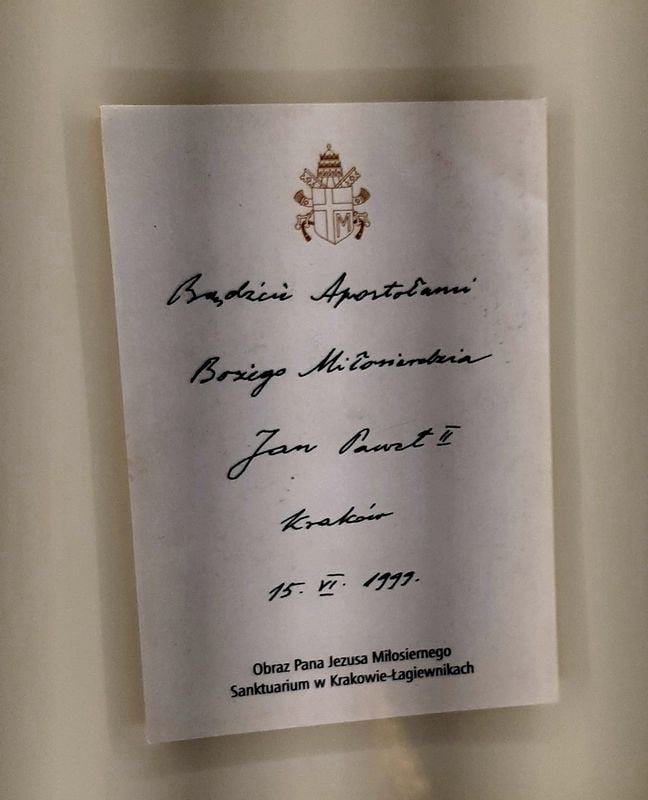 M
Bądźcie Apostołami
Bożego Miłosierdzia
Jan Paweł II
Kraków
15. VI. 1999.
Obraz Pana Jezusa Miłosiernego
Sanktuarium w Krakowie-Łagiewnikach